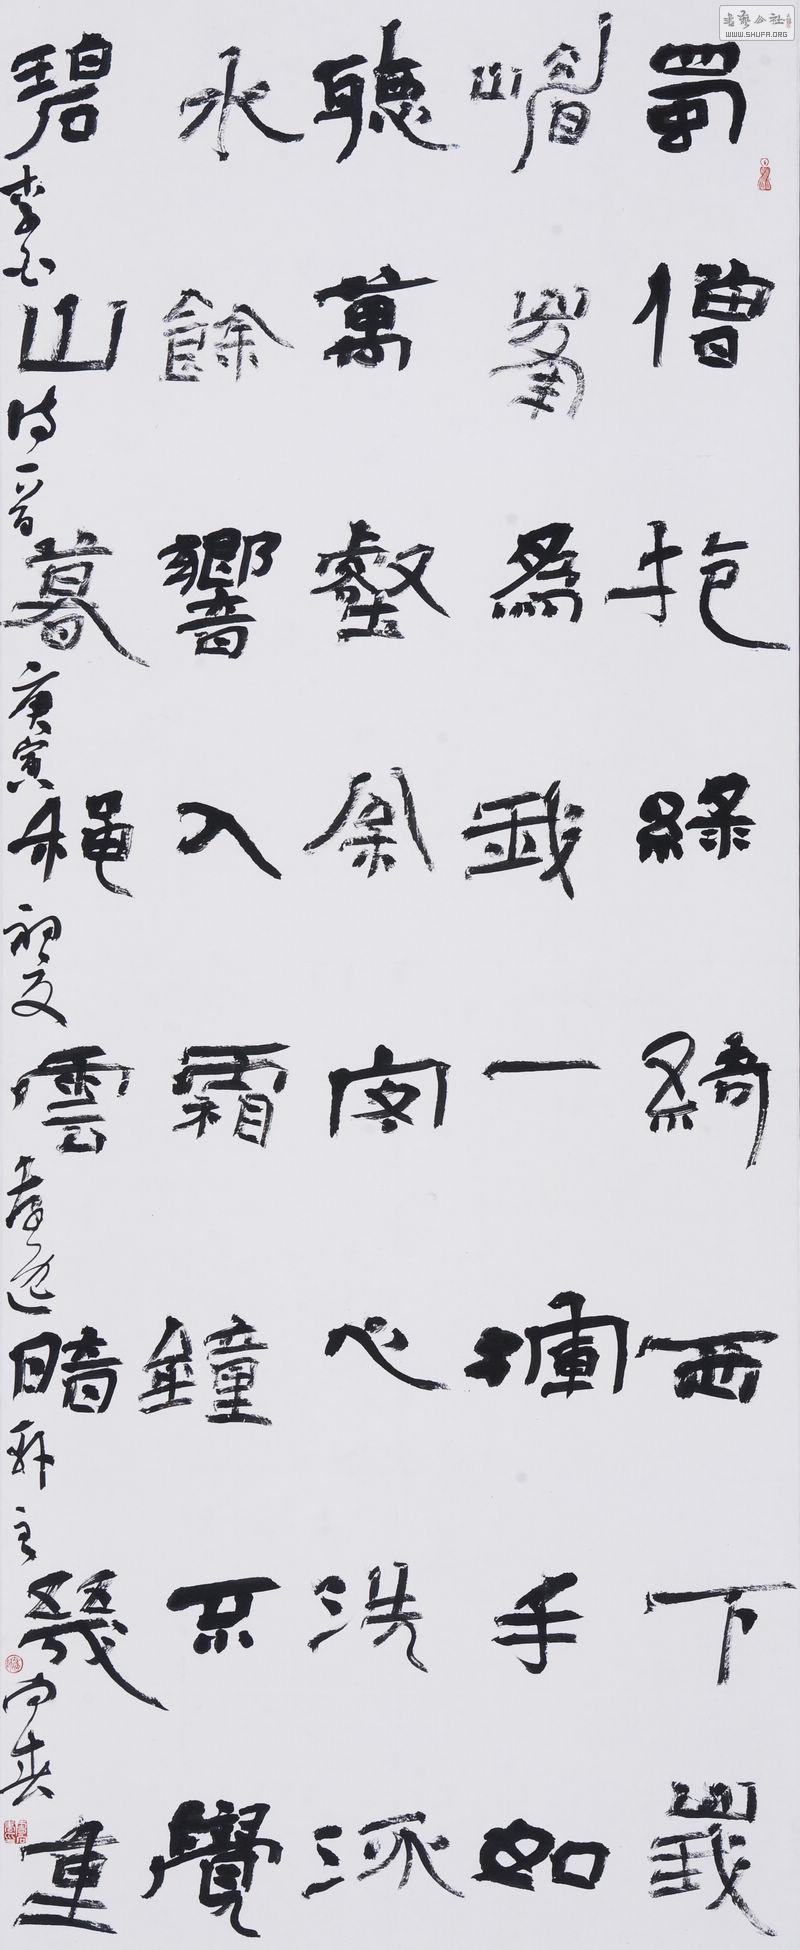 蜀僧抱綠綺西下峩
嵋峯為我一揮手如
聽萬壑枀客心洗流
水餘響入霜鐘不覺
碧山暮穐雲暗幾重
李白詩一首庚寅初夏
书艺公社
WWW.SHUFA.ORG